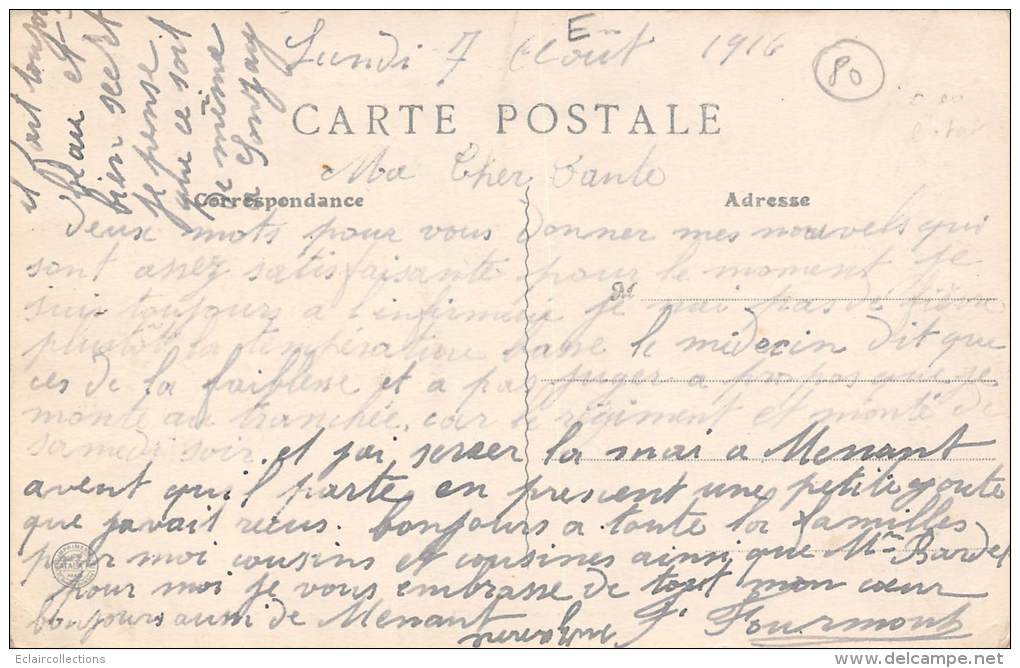 Lundi 7 Août 1916
En
80
CARTE POSTALE
Ma Cher Tante
Correspondance
Adresse
deux mots pour vous donner mes nouvels qui
sont assez satisfaisante pour le moment je
suis toujours a l'infirmerie je nai pas de fièvre
plustôt la température basse le médecin dit que
ces de la faiblesse et a pas juger a propos que je
monte au tranchée. car le régiment et monté de
samedi soir. et jai serrer la mai a Menant
avent qu'il parte en presient une petite goute
que javait recus. bonjours a toute la familles
pour moi cousins et cousines ainsi que Mme Bardet
pour moi je vous embrasse de tout mon cœur
bonjours aussi de Menant
F Fourmont
il fait toujours
beau et
bien sec et
je pense
que ce soit
de même
a Sonzay
Eclaircollections
www.delcampe.net